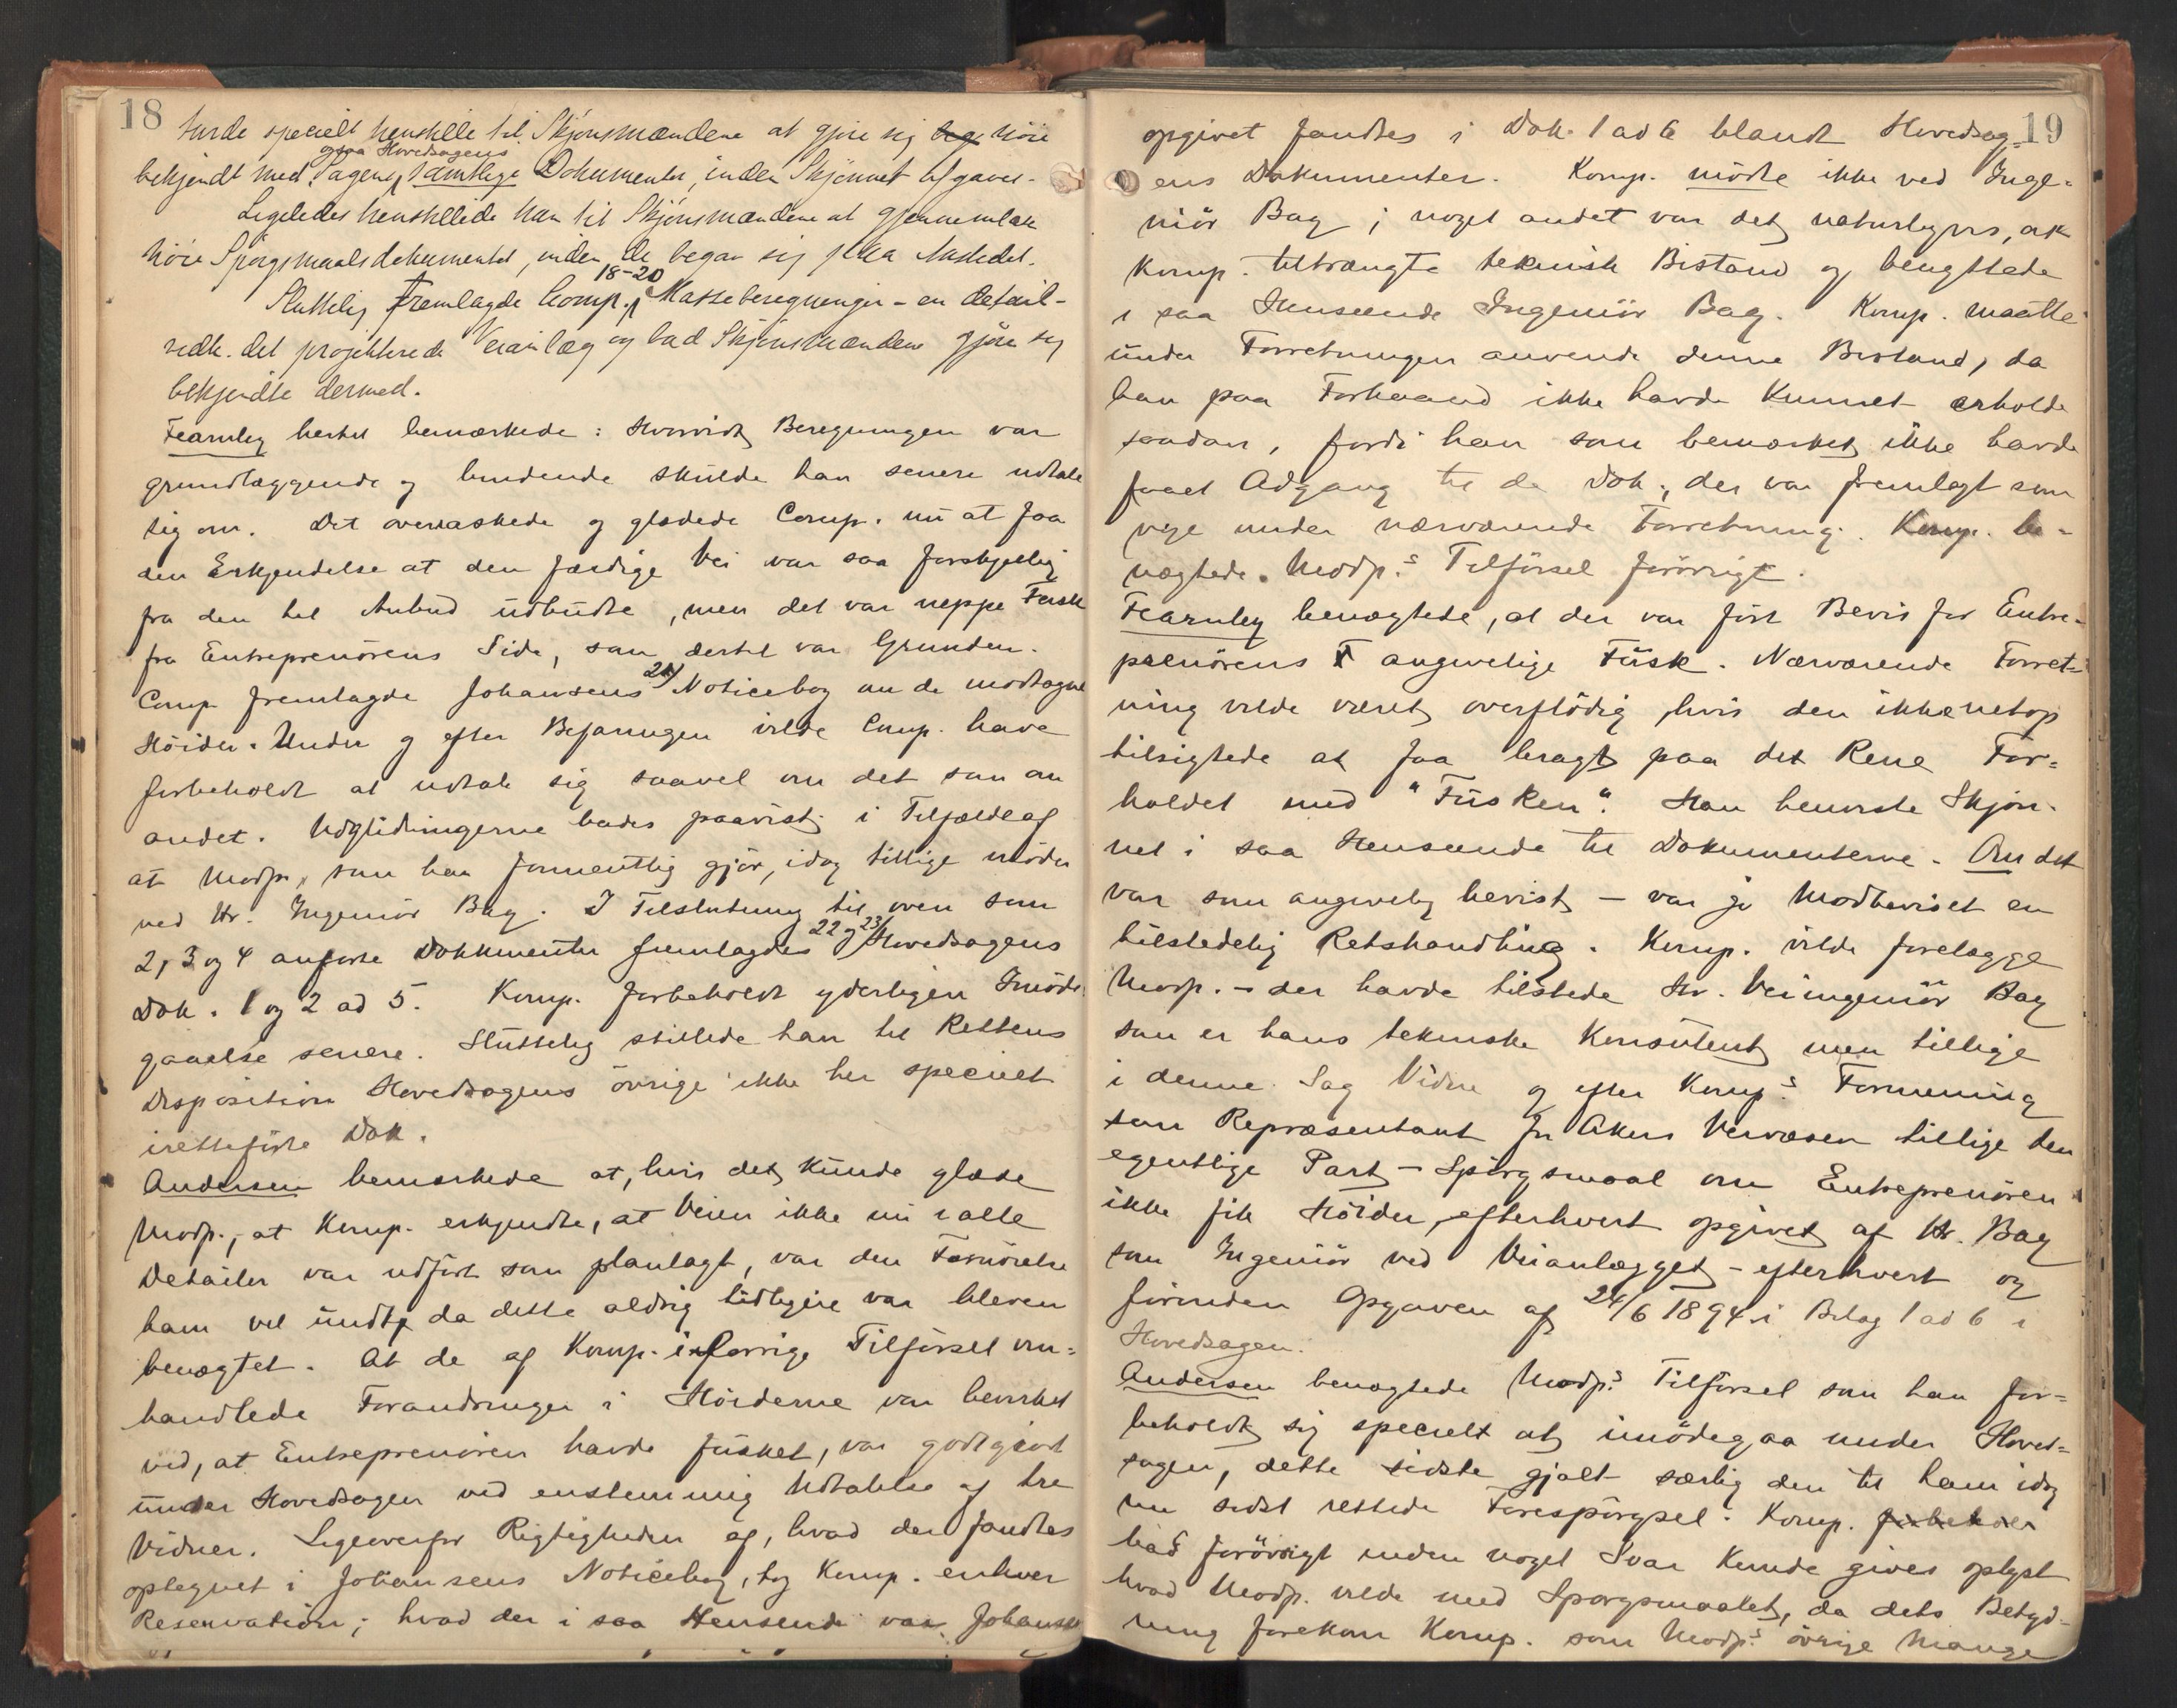 18
turde specielt henstille til Skjönsmændene at gjöre sig nöie
ogsaa Hovedsagens
bekjendt med Sagens samtlige Dokumenter, inden Skjönnet afgaves.
Ligeledes henstillede han til Skjönsmændene at gjennemlæse
nöie Spörgsmaalsdokumentet, inden de begav sig paa Aastedet.
18-20
Sluttelig fremlagde Comp. Masseberegninger - en detail-
vedk. det projekterede Veianlæg og bad Skjönsmændene gjöre sig
bekjendte dermed.
Fearnley hertil bemærkede: Hvorvidt Beregningen var
grundlæggende og bindende skulde han senere udtale
sig om. Det overraskede og glædede Comp. nu at faa
den Erkjendelse at den færdige Vei var saa forskjellig
fra den til Anbud udbudte, men det var neppe Fusk
fra Entreprenörens Side, som dertil var Grunden.
21/
Comp. fremlagde Johansens Noticebog om de modtagne
Höider. Under og efter Befaringen vilde Comp. have
forbeholdt at udtale sig saavel om det som om
andet. Udglidningerne bades paavist i Tilfælde af
at Modp., som han formentlig gjör, idag tillige möder
ved Hr. Ingeniör Bag. I Tilslutning til oven som
22 og 23/
2, 3 og 4 anförte Dokumenter fremlagdes Hovedsagens
Dok. 1 og 2 ad 5. Komp. forbeholdt yderligere Imöde-
gaaelse senere. Sluttelig stillede han til Rettens
Disposition Hovedsagens övrige ikke her specielt
iretteförte Dok.
Andersen bemærkede at, hvis det kunde glæde
Modp., at Komp. erkjendte, at Veien ikke nu i alle
Detailer var udfört som planlagt, var den Fornöielse
ham vel undt, da dette aldrig tidligere var bleven
benægtet. At de af Komp. i forrige Tilförsel om-
handlede Forandringer i Höiderne var bevirket
ved, at Entreprenören havde fusket, var godtgjort
under Hovedsagen ved enstemmig Udtalelse af tre
Vidner. Ligeoverfor Rigtigheden af, hvad der fandtes
optegnet i Johansens Noticebog, tog Komp. enhver
Reservation; hvad der i saa Henseende var Johansen
19
opgivet fandtes i Dok. 1 ad 6 blandt Hovedsag-
ens Dokumenter. Komp. mödte ikke ved Inge-
niör Bag; noget andet var det naturligvis, at
Komp. tiltrængte teknisk Bistand og benyttede
i saa Henseende Ingeniör Bag. Komp. maatte
under Forretningen anvende denne Bistand, da
han paa Forhaand ikke havde kunnet erholde
saadan, fordi han som bemærket ikke havde
faaet Adgang til de Dok., der var fremlagt som
nye under nærværende Forretning. Komp. be-
nægtede Modp.s Tilförsel forövrigt.
Fearnley benægtede, at der var fört Bevis for Entre-
prenörens angivelige Fusk. Nærværende Forret-
ning vilde været overflödig, hvis den ikke netop
tilsigtede at faa bragt paa det Rene For-
holdet med "Fusken". Han henviste Skjön-
net i saa Henseende til Dokumenterne. Om det
var som angivelig bevist - var jo Modbeviset en
tilstedelig Retshandling. Komp. vilde forelægge
Modp. - der havde tilstede Hr. Veiingeniör Bag
som er hans tekniske Konsulent men tillige
i denne Sag Vidne og efter Komp.s Formening
som Repræsentant for Akers Veivæsen tillige den
egentlige Part - Spörgsmaal om Entreprenören
ikke fik Höider, efterhvert opgivet af Hr. Bag
som Ingeniör ved Veianlægget - efterhvert og
forinden Opgaven af 24/6 1894 i Bilag 1 ad 6 i
Hovedsagen.
Andersen benægtede Modp.s Tilförsel som han for-
beholdt sig specielt at imödegaa under Hoved-
sagen, dette sidste gjalt særlig den til ham idag
nu sidst rettede Forespörgsel. Komp. forbeholdt
bad forövrigt inden noget Svar kunde gives oplyst
hvad Modp. vilde med Spörgsmaalet, da dets Betyd-
ning forekom Komp. som Modp.s övrige mange